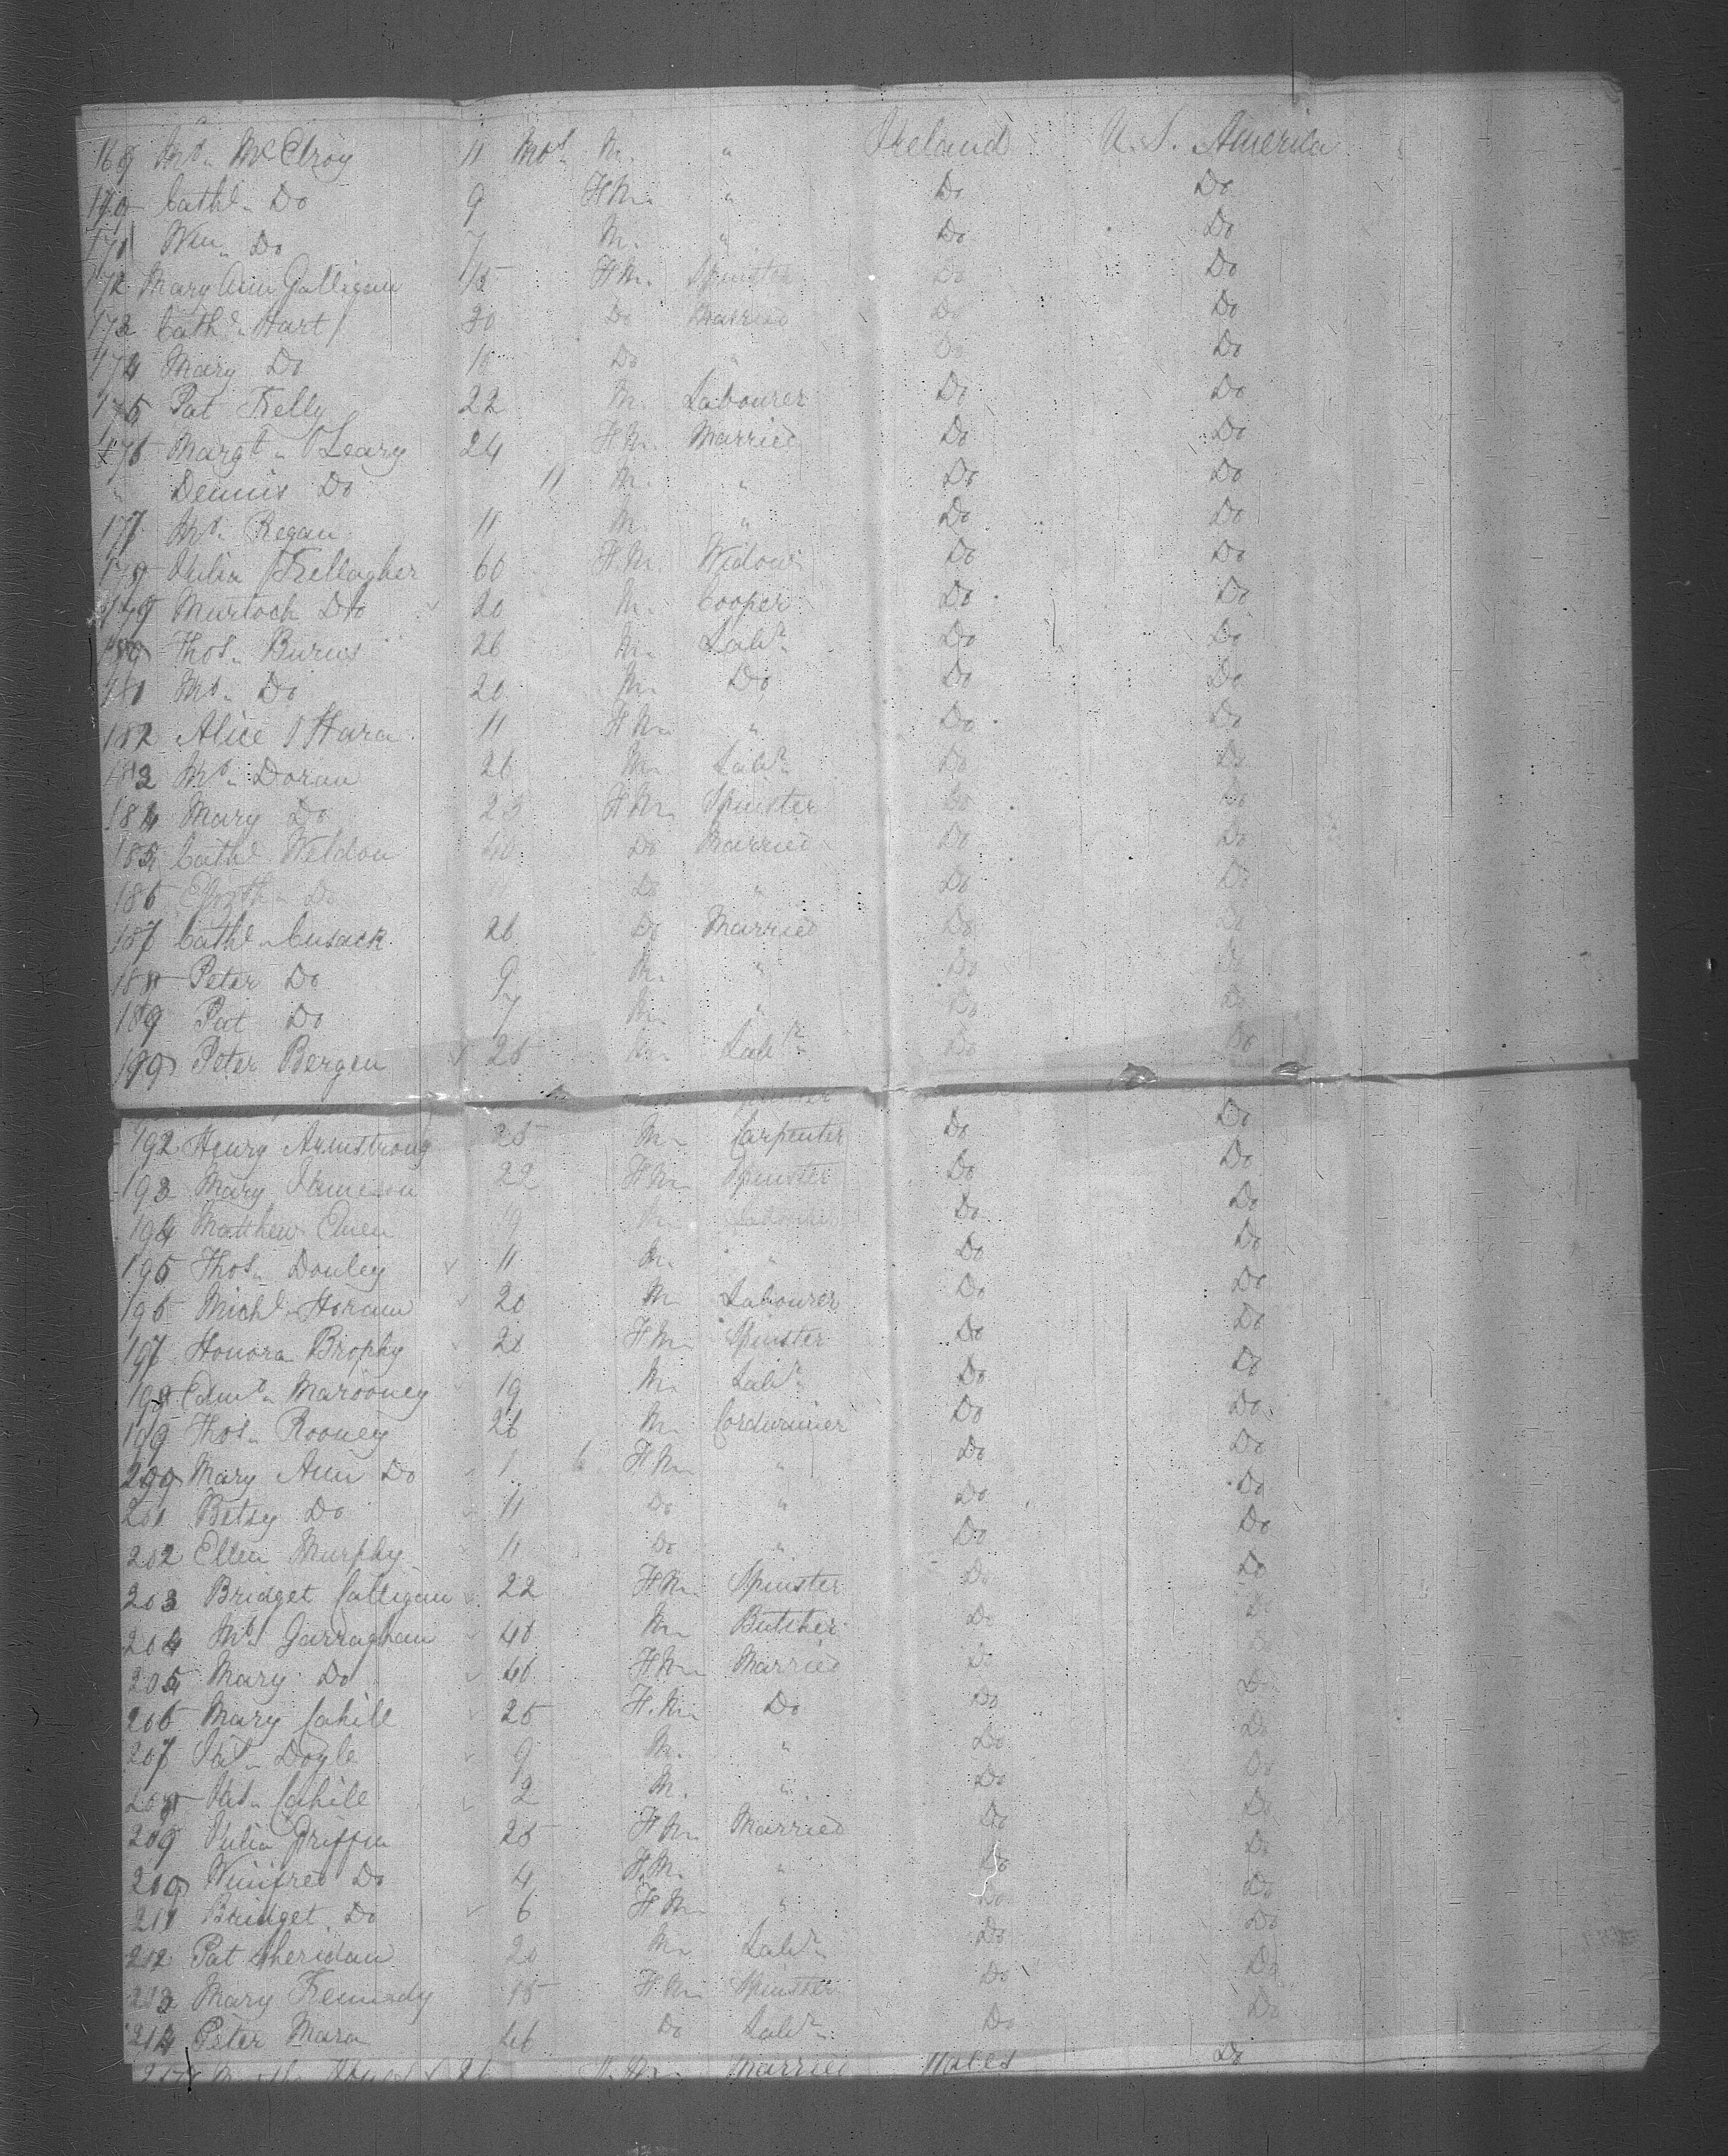 169 Mc. McElroy 11 Mos. M. " Ireland U. S. America
170 Cathe. Do 9 FM. " Do Do
171 Wm. Do 7 M. " Do Do
172 Mary Ann Galligan 15 FM. Spinster Do Do
173 Cathe. Hart 30 Do Married Do Do
174 Mary Do Do " Do Do
175 Pat Kelly 22 M. Labourer Do Do
176 Margt. O'Leary 24 FM. Married Do Do
" Dennis Do 11 M. " Do Do
177 Regan 11 M. " Do Do
178 Julia Kellagher 60 F.M. Widow Do Do
179 Murtoch Do 20 M. Cooper Do Do
180 Thos. Burns 26 M. Labr. Do Do
181 Do 20 M. Do Do Do
182 Alice O'Hara 11 FM. " Do Do
183 Doran 26 M. Labr. Do Do
184 Mary Do 23 FM. Spinster Do Do
185 Cathe. Weldon 40 Do Married Do Do
186 Elizth. Do Do " Do Do
187 Cathe. Cusack 26 Do Married Do Do
188 Peter Do 9 M. " Do Do
189 Pat Do 7 M. " Do Do
190 Peter Bergen 25 M. Labr. Do Do
192 Henry Armstrong 25 M. Carpenter Do Do
193 Mary Jameson 22 FM. Spinster Do Do
194 Matthew Owen 19 M. Labourer Do Do
195 Thos. Donley 11 M. " Do Do
196 Michl. Horann 20 M Labourer Do Do
197 Honora Brophy 20 FM. Spinster Do Do
198 Edmd. Marooney 19 M. Labr. Do Do
199 Thos. Rooney 26 M. Cordwainer Do Do
200 Mary Ann Do 1 6 FM. " Do Do
201 Betsy Do 11 Do " Do Do
202 Ellen Murphy 11 Do " Do Do
203 Bridget Calligan 22 FM. Spinster Do Do
204 Garraghan 40 M. Butcher Do Do
205 Mary Do 40 FM. Married Do Do
206 Mary Cahill 25 F.M. Do Do Do
207 Jas. Doyle 9 M. " Do Do
208 Jas. Cahill 2 M. " Do Do
209 Julia Griffin 25 FM. Married Do Do
210 Winifred Do 4 F.M. " Do Do
211 Bridget Do 6 FM. " Do Do
212 Pat Sheridan 20 M. Labr. Do Do
213 Mary Kennedy 15 F.M. Spinster Do Do
214 Peter Mara 46 Do Labr. Do Do
Married Wales Do